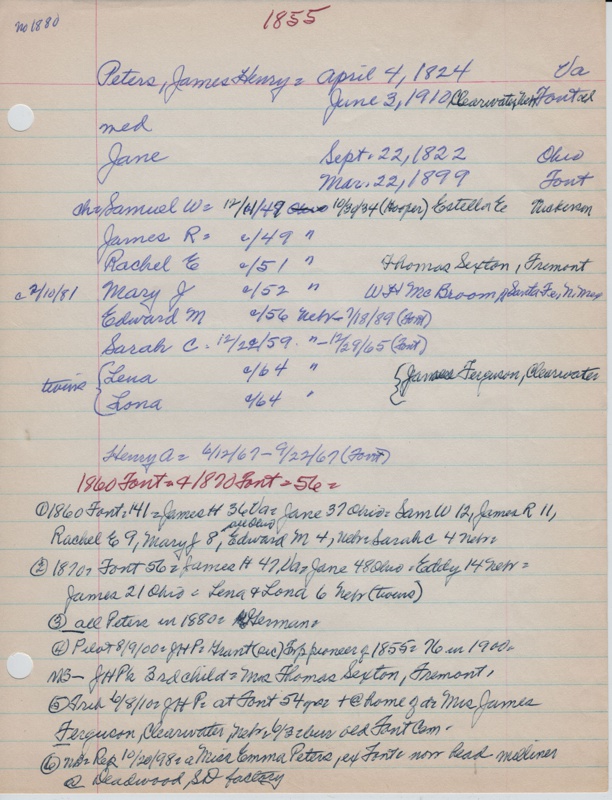 no 1880
1855
Peters, James Henry = April 4, 1824 Va
June 3, 1910 Clearwater, Neb Font old
med
Jane Sept. 22, 1822 Ohio
Mar. 22, 1899 Font
ch = Samuel W = 49 10/30/34 (Hooper) Estella E
James R = c/49 "
Rachel E c/51 " Thomas Sexton, Fremont
c 2/10/81 Mary J c/52 " W H McBroom, of Santa Fe, N. Mex
Edward M c/56 Neb = 7/18/89 (Font)
Sarah C. 12/22/59. " - 12/29/65 (Font)
twins { Lena c/64 " { James Ferguson, Clearwater
{ Lona c/64 "
Henry A = 6/12/67 - 9/22/67 (Font)
1860 Font = & 1870 Font = 56 =
① 1860 Font, 141 = James H 36 Va = Jane 37 Ohio = Sam W 12, James R 11,
Rachel E 9, Mary J 8, all Ohio Edward M 4, Neb = Sarah C 4 Neb =
② 1870 = Font 56 = James H 47, Va = Jane 48 Ohio = Eddy 14 Neb =
James 21 Ohio = Lena & Lona 6 Neb (twins)
③ all Peters in 1880 = Herman =
④ Pilot 8/9/00 = JHP = Grant (sic) Exp pioneer of 1855 = 76 in 1900 =
NB - JHP's 3rd child = Mrs Thomas Sexton, Fremont,
⑤ Trib 6/8/10 = JHP = at Font 54 yrs = + @ home of d = Mrs James
Ferguson, Clearwater, Neb, 6/3 = bur old Font Cem.
⑥ NB = Rep 10/20/98 = a Miss Emma Peters, ex Font = now head milliner
@ Deadwood, SD factory